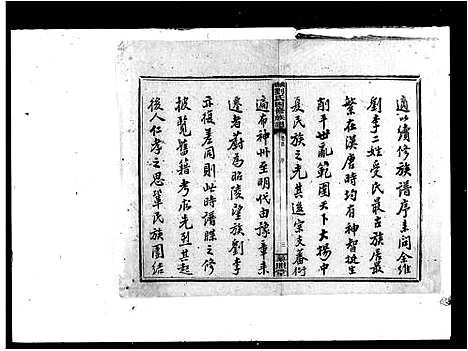 適以續修族譜序來問余維
劉李二姓受氏最古族居最
繁在漢唐時均有神智挺生
削平世亂範圍天下大揚中
夏民族之光其遺宗支蕃衍
劉氏四修族譜
卷首 序
三
適布神州至明代由豫章來
遷者蔚為昭陵望族劉李
亦復差同則此時譜牒之修
披覽舊籍考求先烈其起
後人仁孝之思鞏民族團結